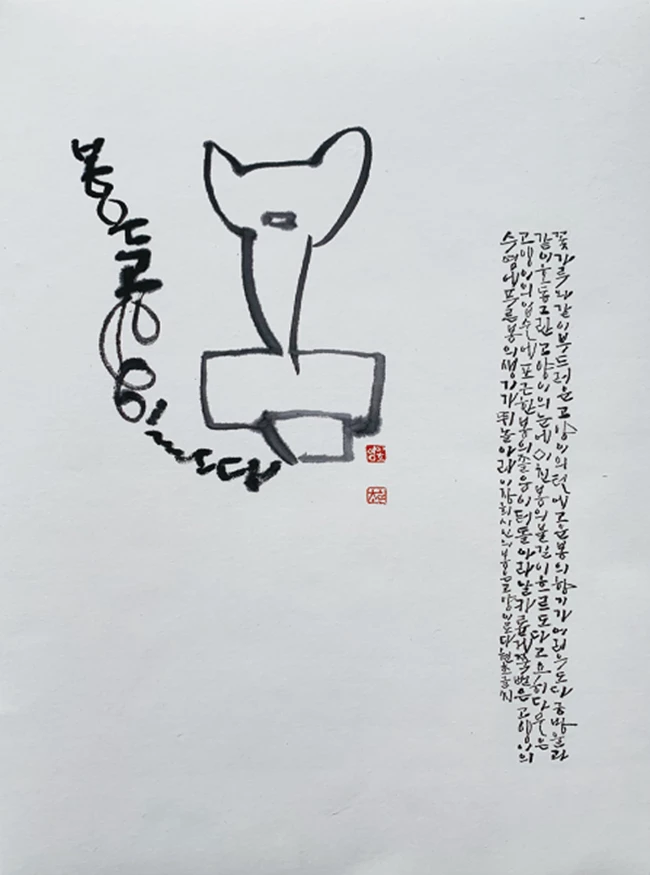 봄은고양이로다
꽃가루와같이부드러운고양이의털에고운봄의향기가어리우도다금방울과
같이호동그란고양이의눈에미친봄의불길이흐르도다고요히다물은
고양이의입술에포근한봄의졸음이떠돌아라날카롭게쭉뻗은고양이의
수염에푸른봄의생기가뛰놀아라이장희시인의봄은고양이로다